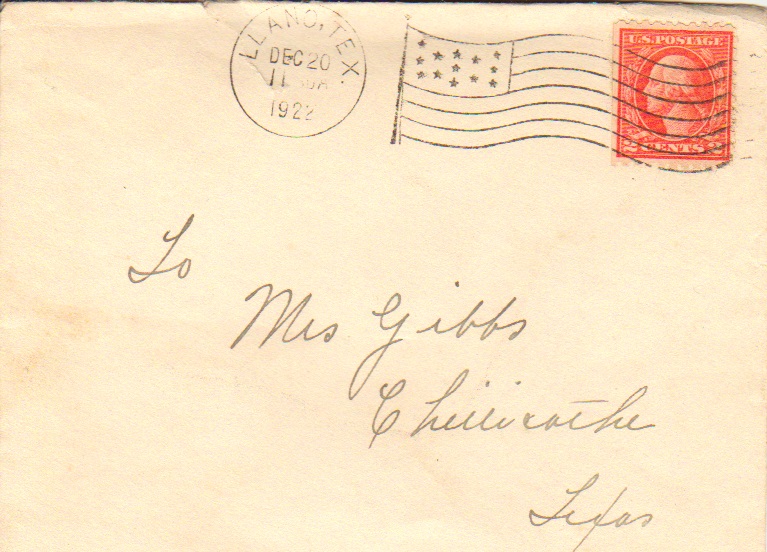 LLANO, TEX.
DEC 20
11
1922
U.S. POSTAGE
2 CENTS 2
To
Mrs Gibbs
Chillicothe
Texas